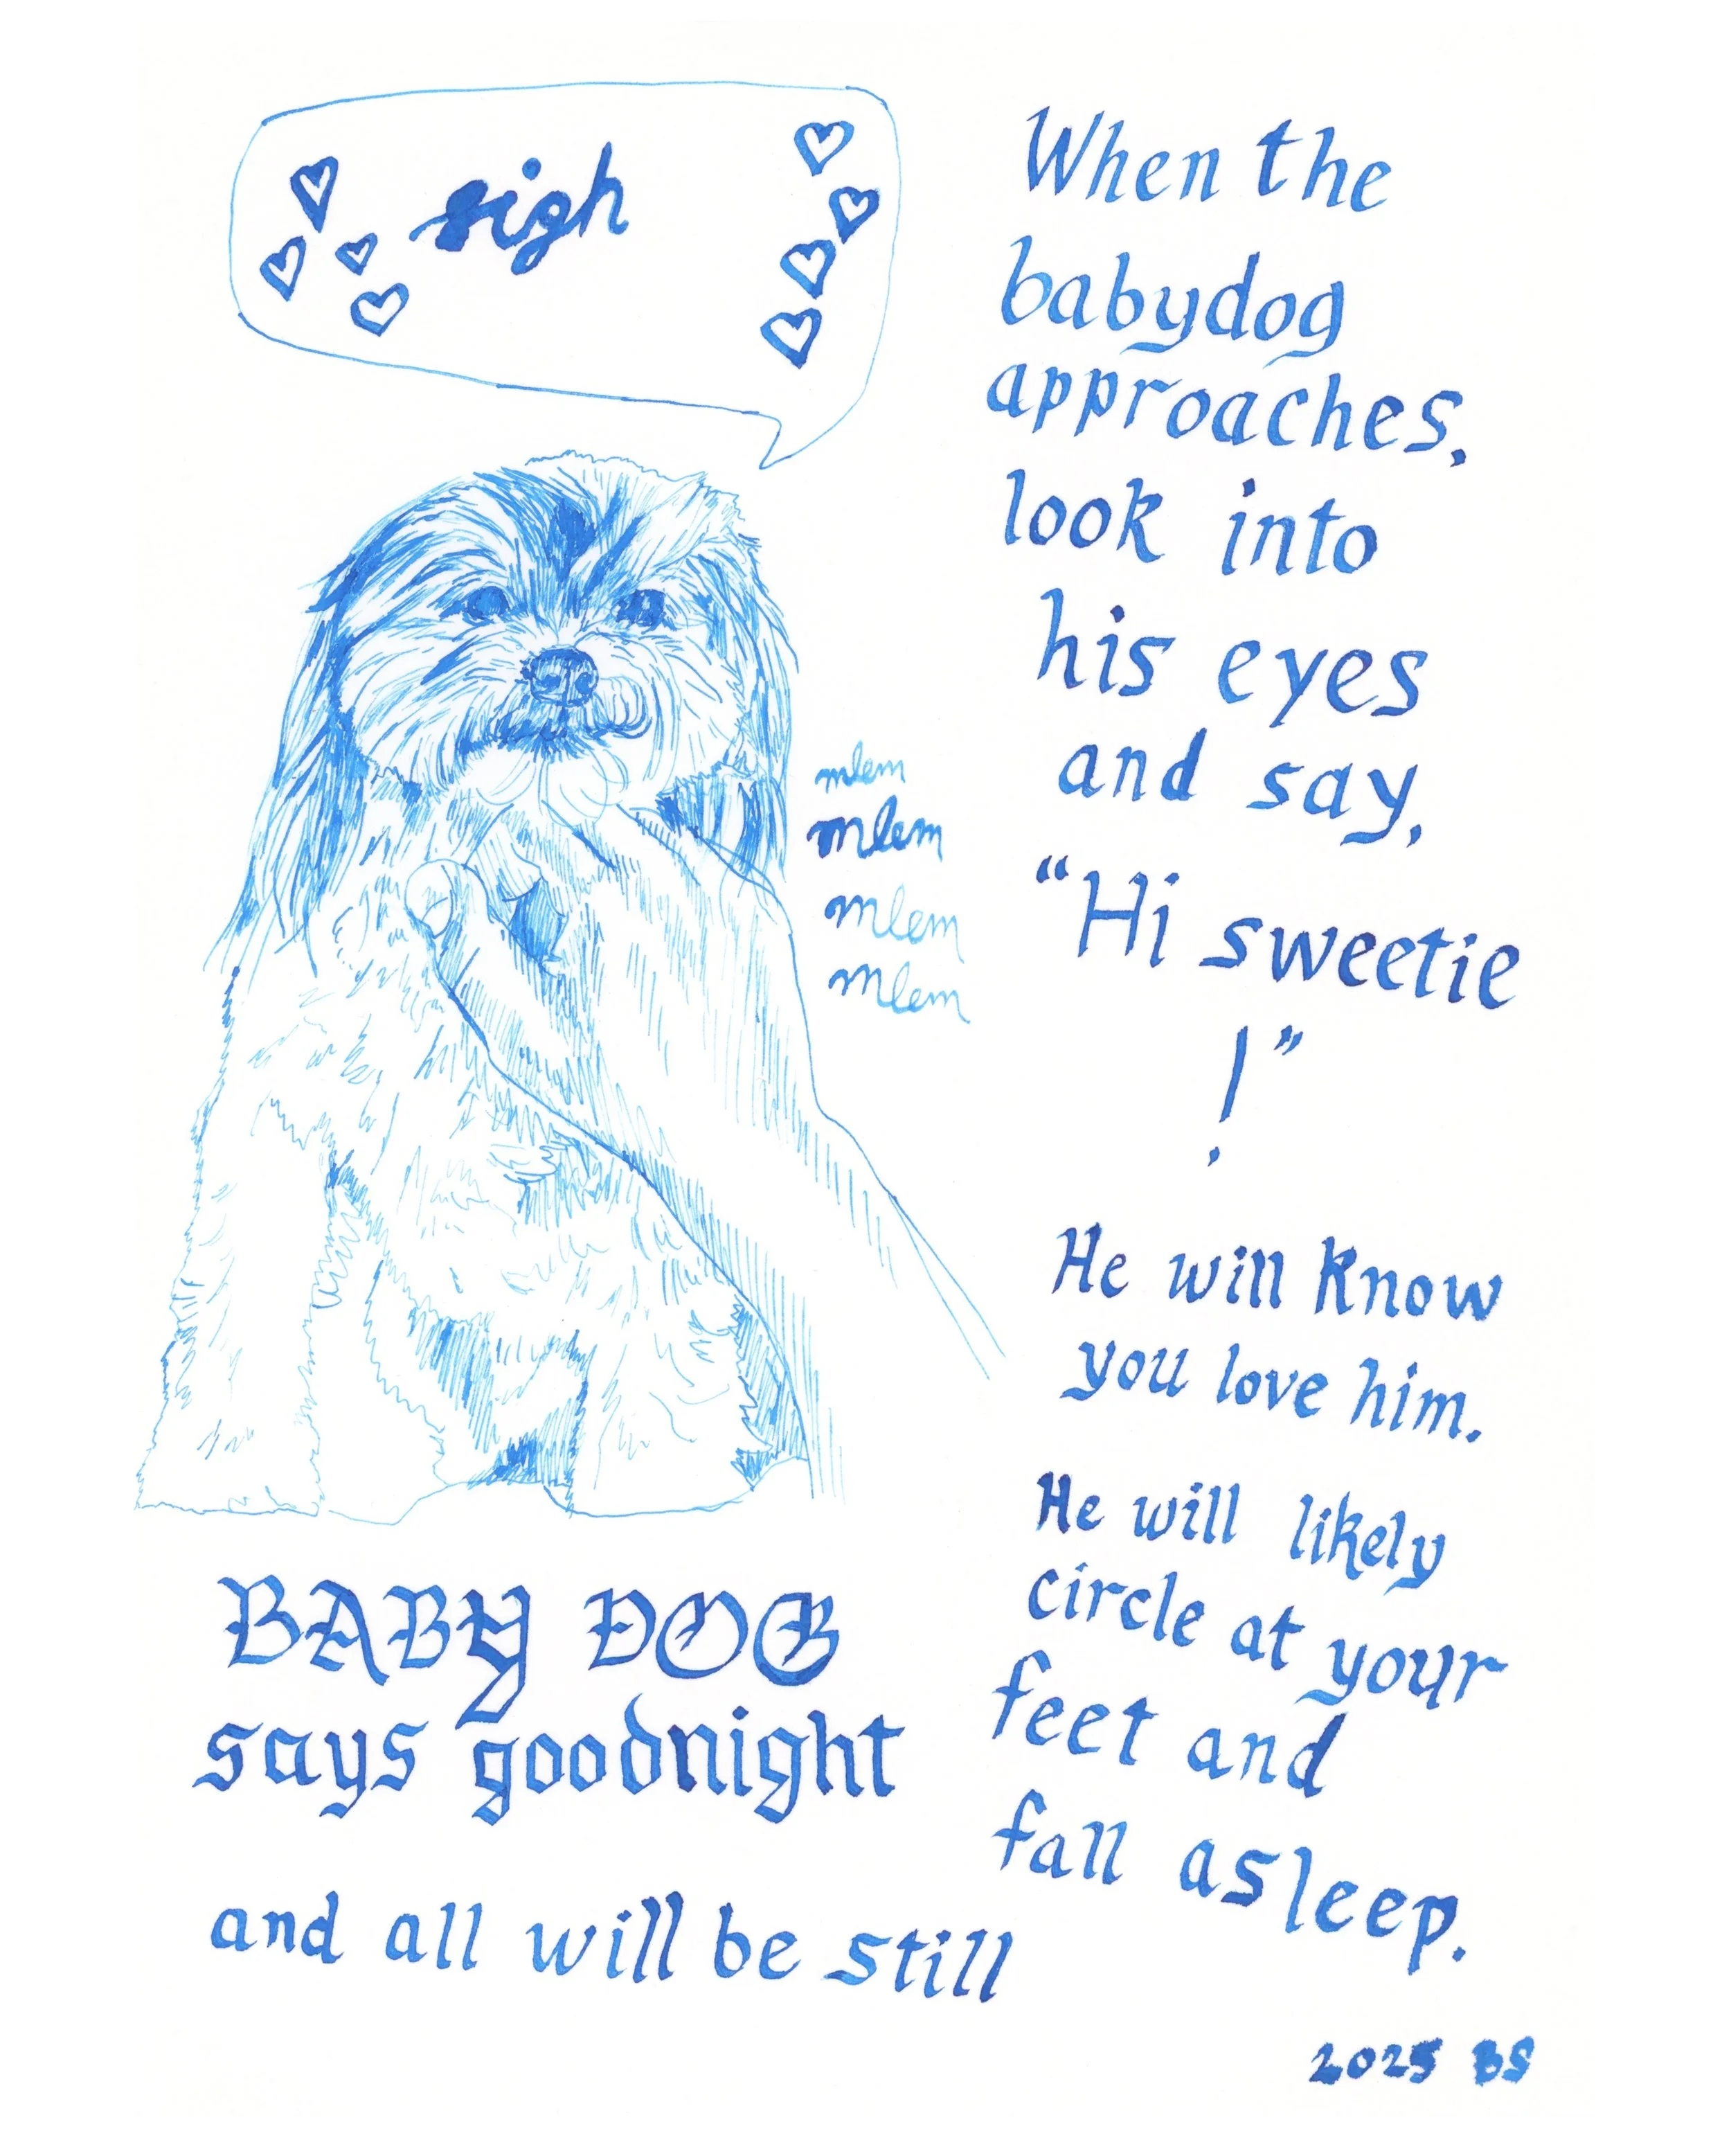 sigh
mlem
mlem
mlem
mlem
BABY DOG
says goodnight
and all will be still
When the
babydog
approaches,
look into
his eyes
and say,
“Hi sweetie
!”
He will know
you love him.
He will likely
circle at your
feet and
fall asleep.
2025 BS